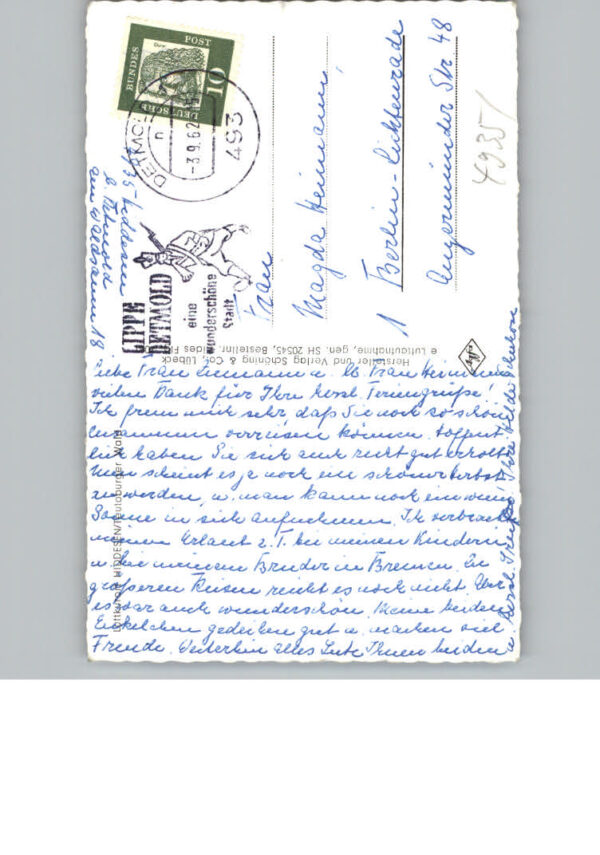 DEUTSCHE BUNDESPOST
10
Dürer
DETMOLD
n
-3.9.62
493
LIPPE
DETMOLD
eine
wunderschöne
Stadt
4935 Hiddesen
b. Detmold
am Waldsaum 18
Frau
Magda Heimann
1 Berlin-Lichtenrade
Angermünder Str 48
4935/
Hersteller und Verlag Schöning & Co., Lübeck
Luftaufnahme, gen. SH 20545, Bestellnr.
Luftkurort HIDDESEN/Teutoburger Wald
Liebe Frau u. lb. Frau Heimann
vielen Dank für Ihre herzl. Feriengrüße!
Ich freue mich sehr, daß Sie noch so schön
zusammen verreisen können. Hoffent-
lich haben Sie sich auch recht gut erholt.
Nun scheint es ja noch ein schöner Herbst
zu werden, u. man kann noch ein wenig
Sonne in sich aufnehmen. Ich verbrachte
meinen Urlaub z. T. bei meinen Kindern
u. bei meinem Bruder in Bremen. Zu
größeren Reisen reicht es noch nicht. Aber
es war auch wunderschön. Meine beiden
Enkelchen gedeihen gut u. machen viel
Freude. Weiterhin alles Gute Ihnen beiden u.
herzl. Grüße! Ihre Hilde